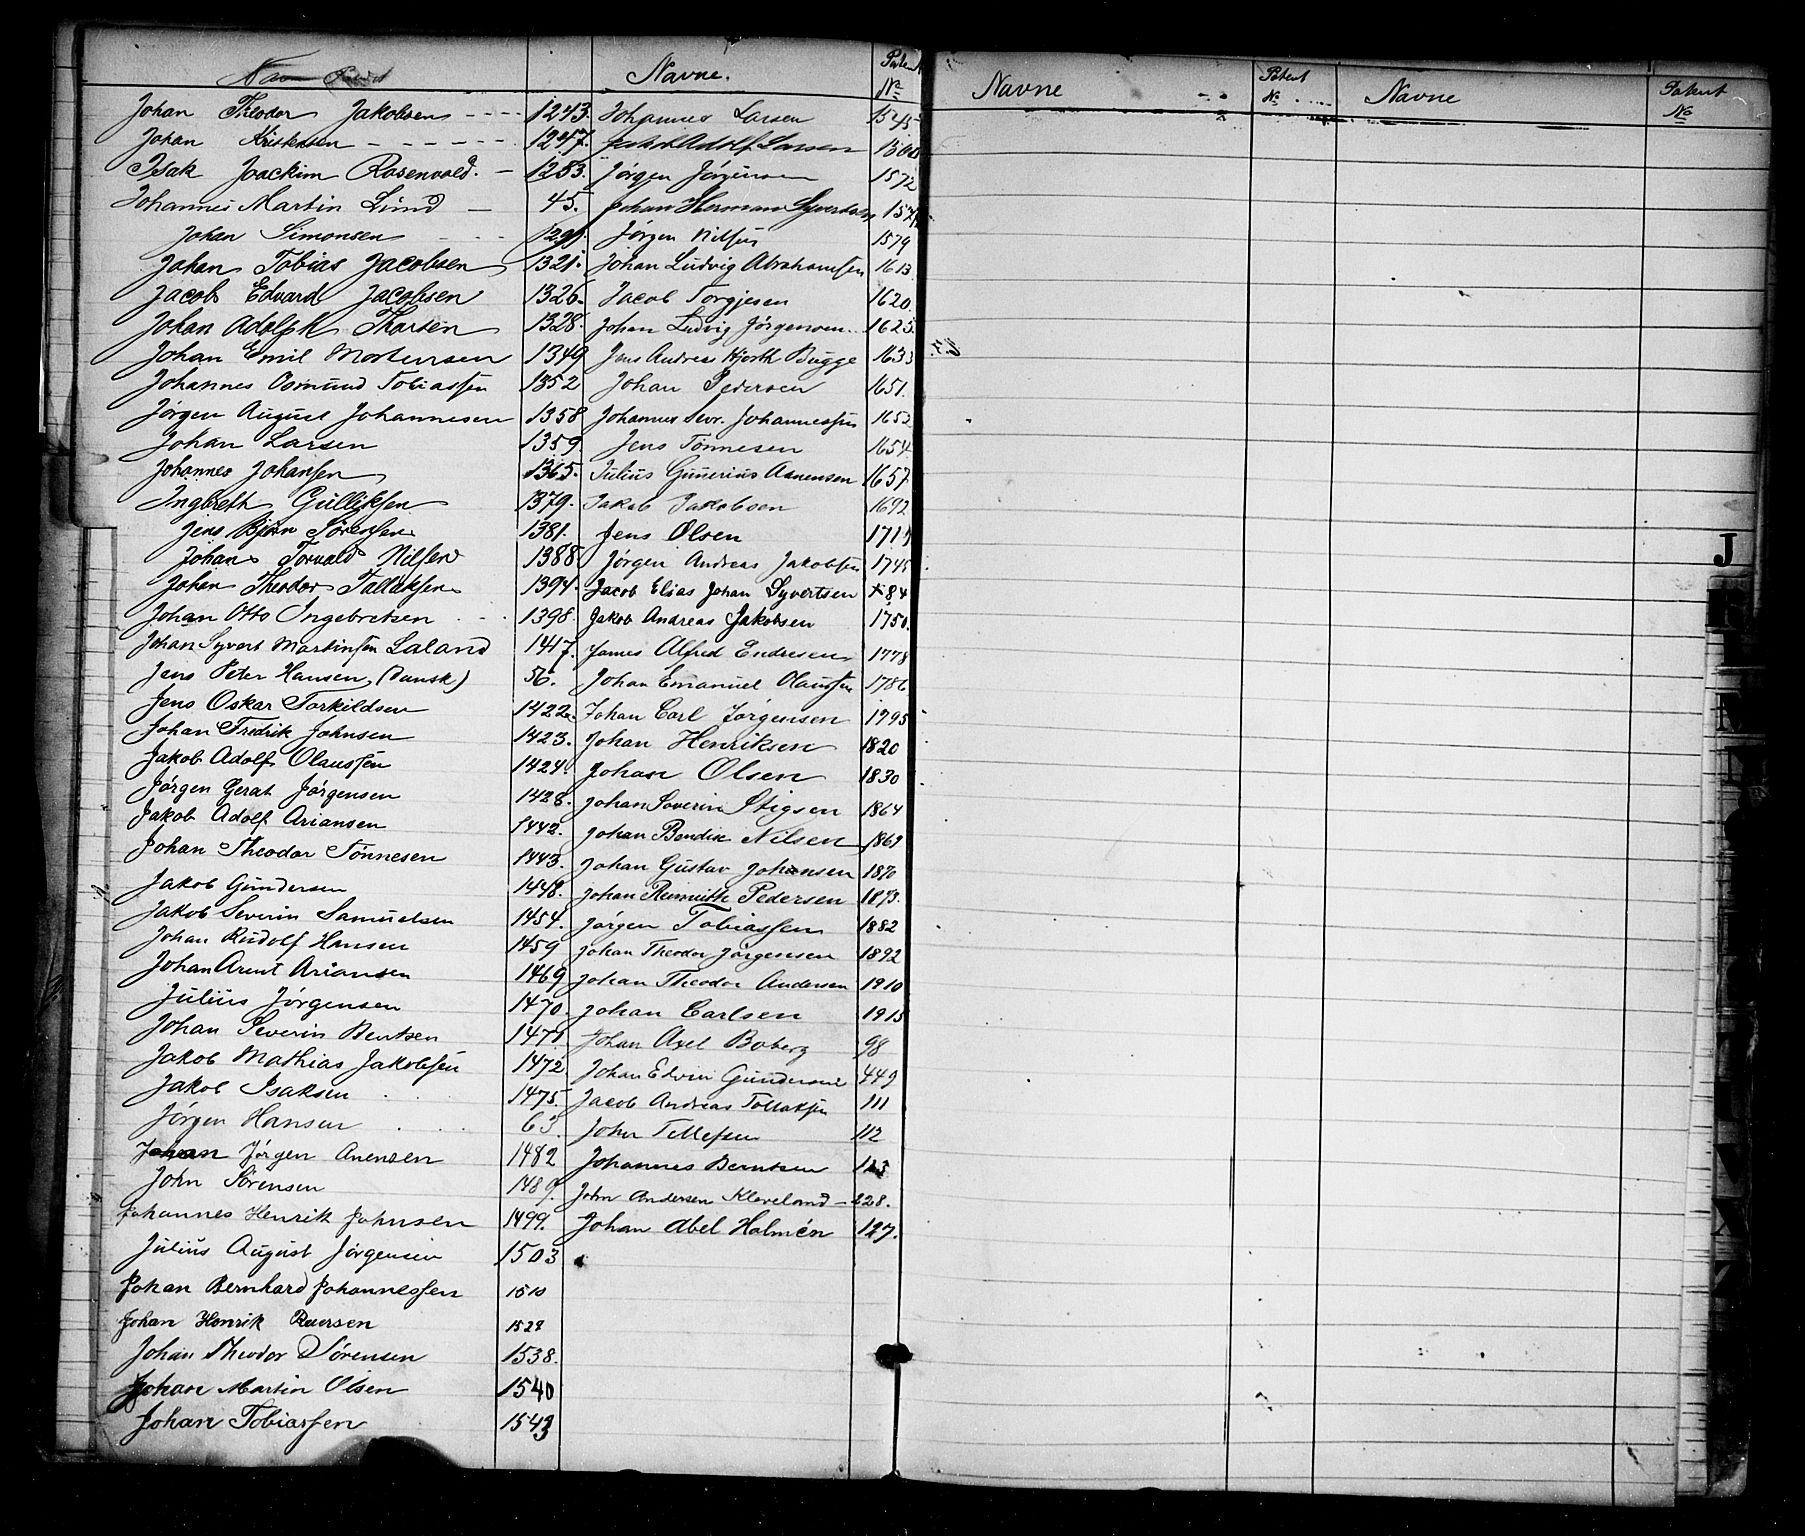 Navn Patent
Johan Theodor Jakobsen 1243.
Johan Kristensen 1247.
Isak Joackim Rosenvold. 1253.
Johannes Martin Lund 45.
Johan Simonsen
Johan Tobias Jacobsen 1321.
Jacob Edvard Jacobsen 1326.
Johan Adolph Thorsen 1328.
Johan Emil Mortensen 1349
Johannes Osmund Tobiassen 1352
Jørgen August Johannesen 1358
Johan Larsen 1359.
Johannes Johansen 1365.
Ingbreth Gulliksen 1379.
Jens Bjørn Sørensen 1381.
Johan Torvald Nilsen 1388.
Johan Theodor Tallaksen 1394.
Johan Otto Ingebretsen 1398.
Johan Syvert Martinsen Laland 1417.
Jens Peter Hansen, (Dansk) 56.
Jens Oskar Torkildsen 1422.
Johan Fredrik Johnsen 1423.
Jakob Adolf Olaussen 1424.
Jørgen Gerat Jørgensen 1428.
Jakob Adolf Ariansen 1442.
Johan Theodor Tønnesen 1443.
Jakob Gundersen 1448.
Jakob Severin Samuelsen 1454.
Johan Rudolf Hansen 1459
Johan Arent Ariansen 1469
Julius Jørgensen 1470.
Johan Severin Bentsen 1471.
Jakob Mathias Jakobsen 1472.
Jakob Isaksen 1475.
Jørgen Hansen 63.
Johan Jørgen Anensen 1482
John Sørensen 1489.
Johannes Henrik Johnsen 1499.
Julius August Jørgensen 1503
Johan Bernhard Johannessen 1510
Johan Henrik 1529
Johan Theodor Sørensen 1538.
Johan Martin Olsen 1540
Johan Tobiassen 1543
Navne. Patent No
Johannes Larsen 1545
Jakob Adolf Larsen 1560
Jørgen Jørgensen 1572
Johan Herman Syvertsen
Jørgen Nilsen 1579
Johan Ludvig Abrahamsen 1613
Jacob Torgjesen 1620
Johan Ludvig Jørgensen 1625.
Jens Andreas Hjorth Bugge 1633
Johan Pedersen 1651.
Johannes Sevr. Johannessen 1653
Jens Tønnesen 1654
Julius Gunerius Aanensen 1657
Jakob Jakobsen 1692
Jens Olsen 1711
Jørgen Andreas Jakobsen 1745.
Jacob Elias Johan Syvertsen + 84
Jakob Andreas Jakobsen 1750.
James Alfred Endresen 1778
Johan Emanuel Olaussen 1786
Johan Carl Jørgensen 1795
Johan Henriksen 1820
Johan Olsen 1830
Johan Soverin Stigsen 1864
Johan Bendix Nilsen 1869
Johan Gustav Johansen 1870
Johan Pedersen 1873.
Jørgen Tobiassen 1882
Johan Theodor Jørgensen 1892
Johan Theodor Andersen 1910
Johan Carlsen 1915
Johan Axel Boberg 98
Johan Edvin Gundersen 449
Jacob Andreas Tollaksen 111
John Tellefsen 112
Johannes Berntsen 123
John Andersen Kleveland 228.
Johan Abel Holmén 127.
Navne Patent No Navne Patent No
J